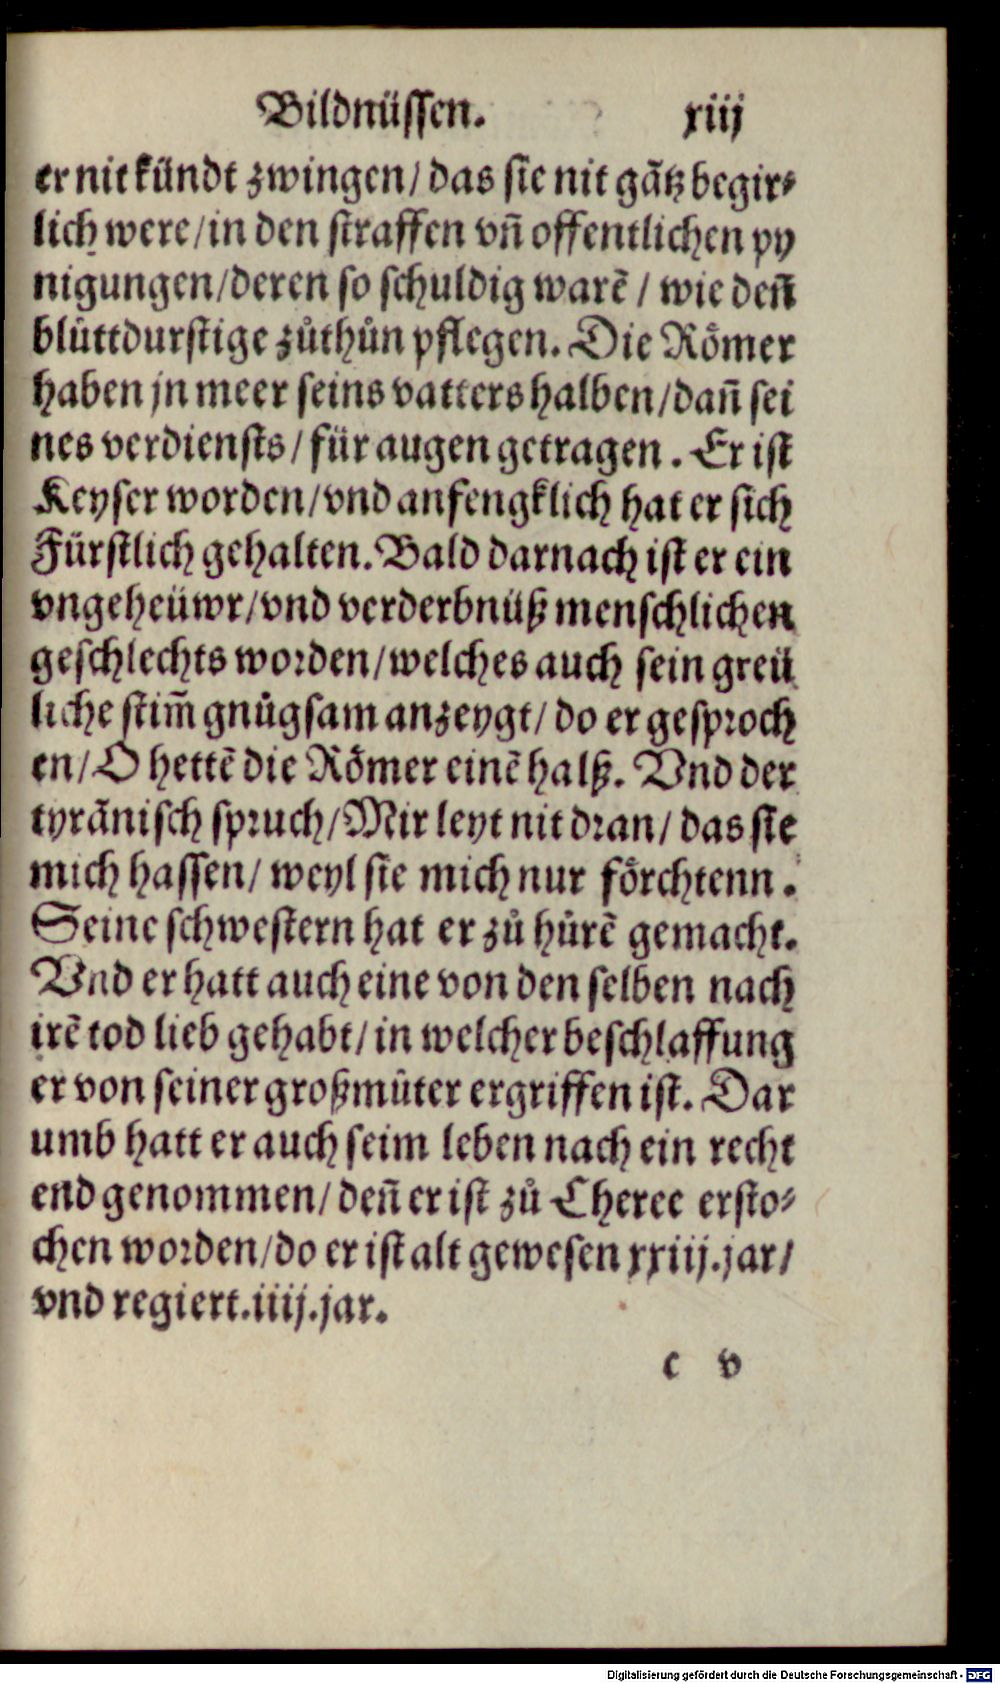 Bildnüssen. xiij
er nit kündt zwingen/ das sie nit gãtz begir⸗
lich were/in den straffen vñ offentlichen py
nigungen/deren so schuldig warẽ / wie deñ
blůttdurstige zůthůn pflegen. Die Rőmer
haben jn meer seins vatters halben/dañ sei
nes verdiensts/ für augen getragen. Er ist
Keyser worden/vnd anfengklich hat er sich
Fürstlich gehalten. Bald darnach ist er ein
vngeheüwr/vnd verderbnüß menschlichen
geschlechts worden/welches auch sein greü
liche stim̃ gnůgsam anzeygt/ do er gesproch
en/ O hettẽ die Rőmer einẽ halß. Vnd der
tyrãnisch spruch/Mir leyt nit dran/ das sie
mich hassen/ weyl sie mich nur főrchtenn.
Seine schwestern hat er zů hůrẽ gemacht.
Vnd er hatt auch eine von den selben nach
irẽ tod lieb gehabt/ in welcher beschlaffung
er von seiner großmůter ergriffen ist. Dar
umb hatt er auch seim leben nach ein recht
end genommen/ deñ er ist zů Cheree ersto⸗
chen worden/do er ist alt gewesen xxiij.jar/
vnd regiert.iiij.jar.
c v
Digitalisierung gefördert durch die Deutsche Forschungsgemeinschaft - DFG